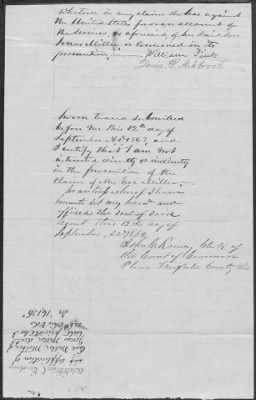 whatever in any claim she has against
the United States for on account of
the services, as aforesaid of her said Son
Jonas Miller, is concerned in its
prosecution,
William Fink
Louis R. Ashbrook
Sworn to and Subscribed
before me this 12th day of
September A.D. 1863, and
I certify that I am not
interested directly or indirectly
in the prosecution of the
claim of Mrs Eve Miller,
In testimony whereof I have
unto set my hand and
affixed the Seal of Said
Court this 12th day of
September A.D. 1863
John C. Rainey, Clk of
the Court of Common
Pleas Fairfield County
Additional Evidence
application of
Eve Miller Mother of
Jonas Miller